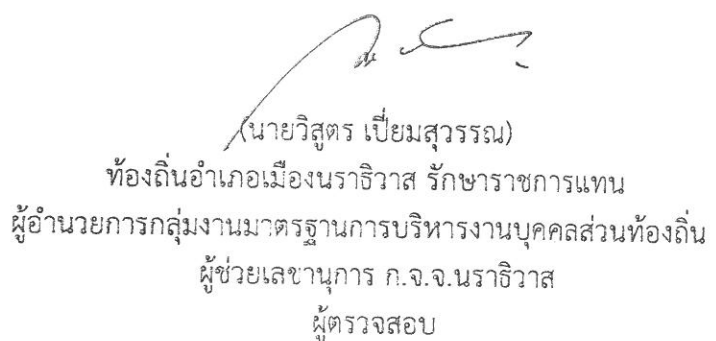 (นายวิสูตร เปี่ยมสุวรรณ)
ท้องถิ่นอำเภอเมืองนราธิวาส รักษาราชการแทน
ผู้อำนวยการกลุ่มงานมาตรฐานการบริหารงานบุคคลส่วนท้องถิ่น
ผู้ช่วยเลขานุการ ก.จ.จ.นราธิวาส
ผู้ตรวจสอบ